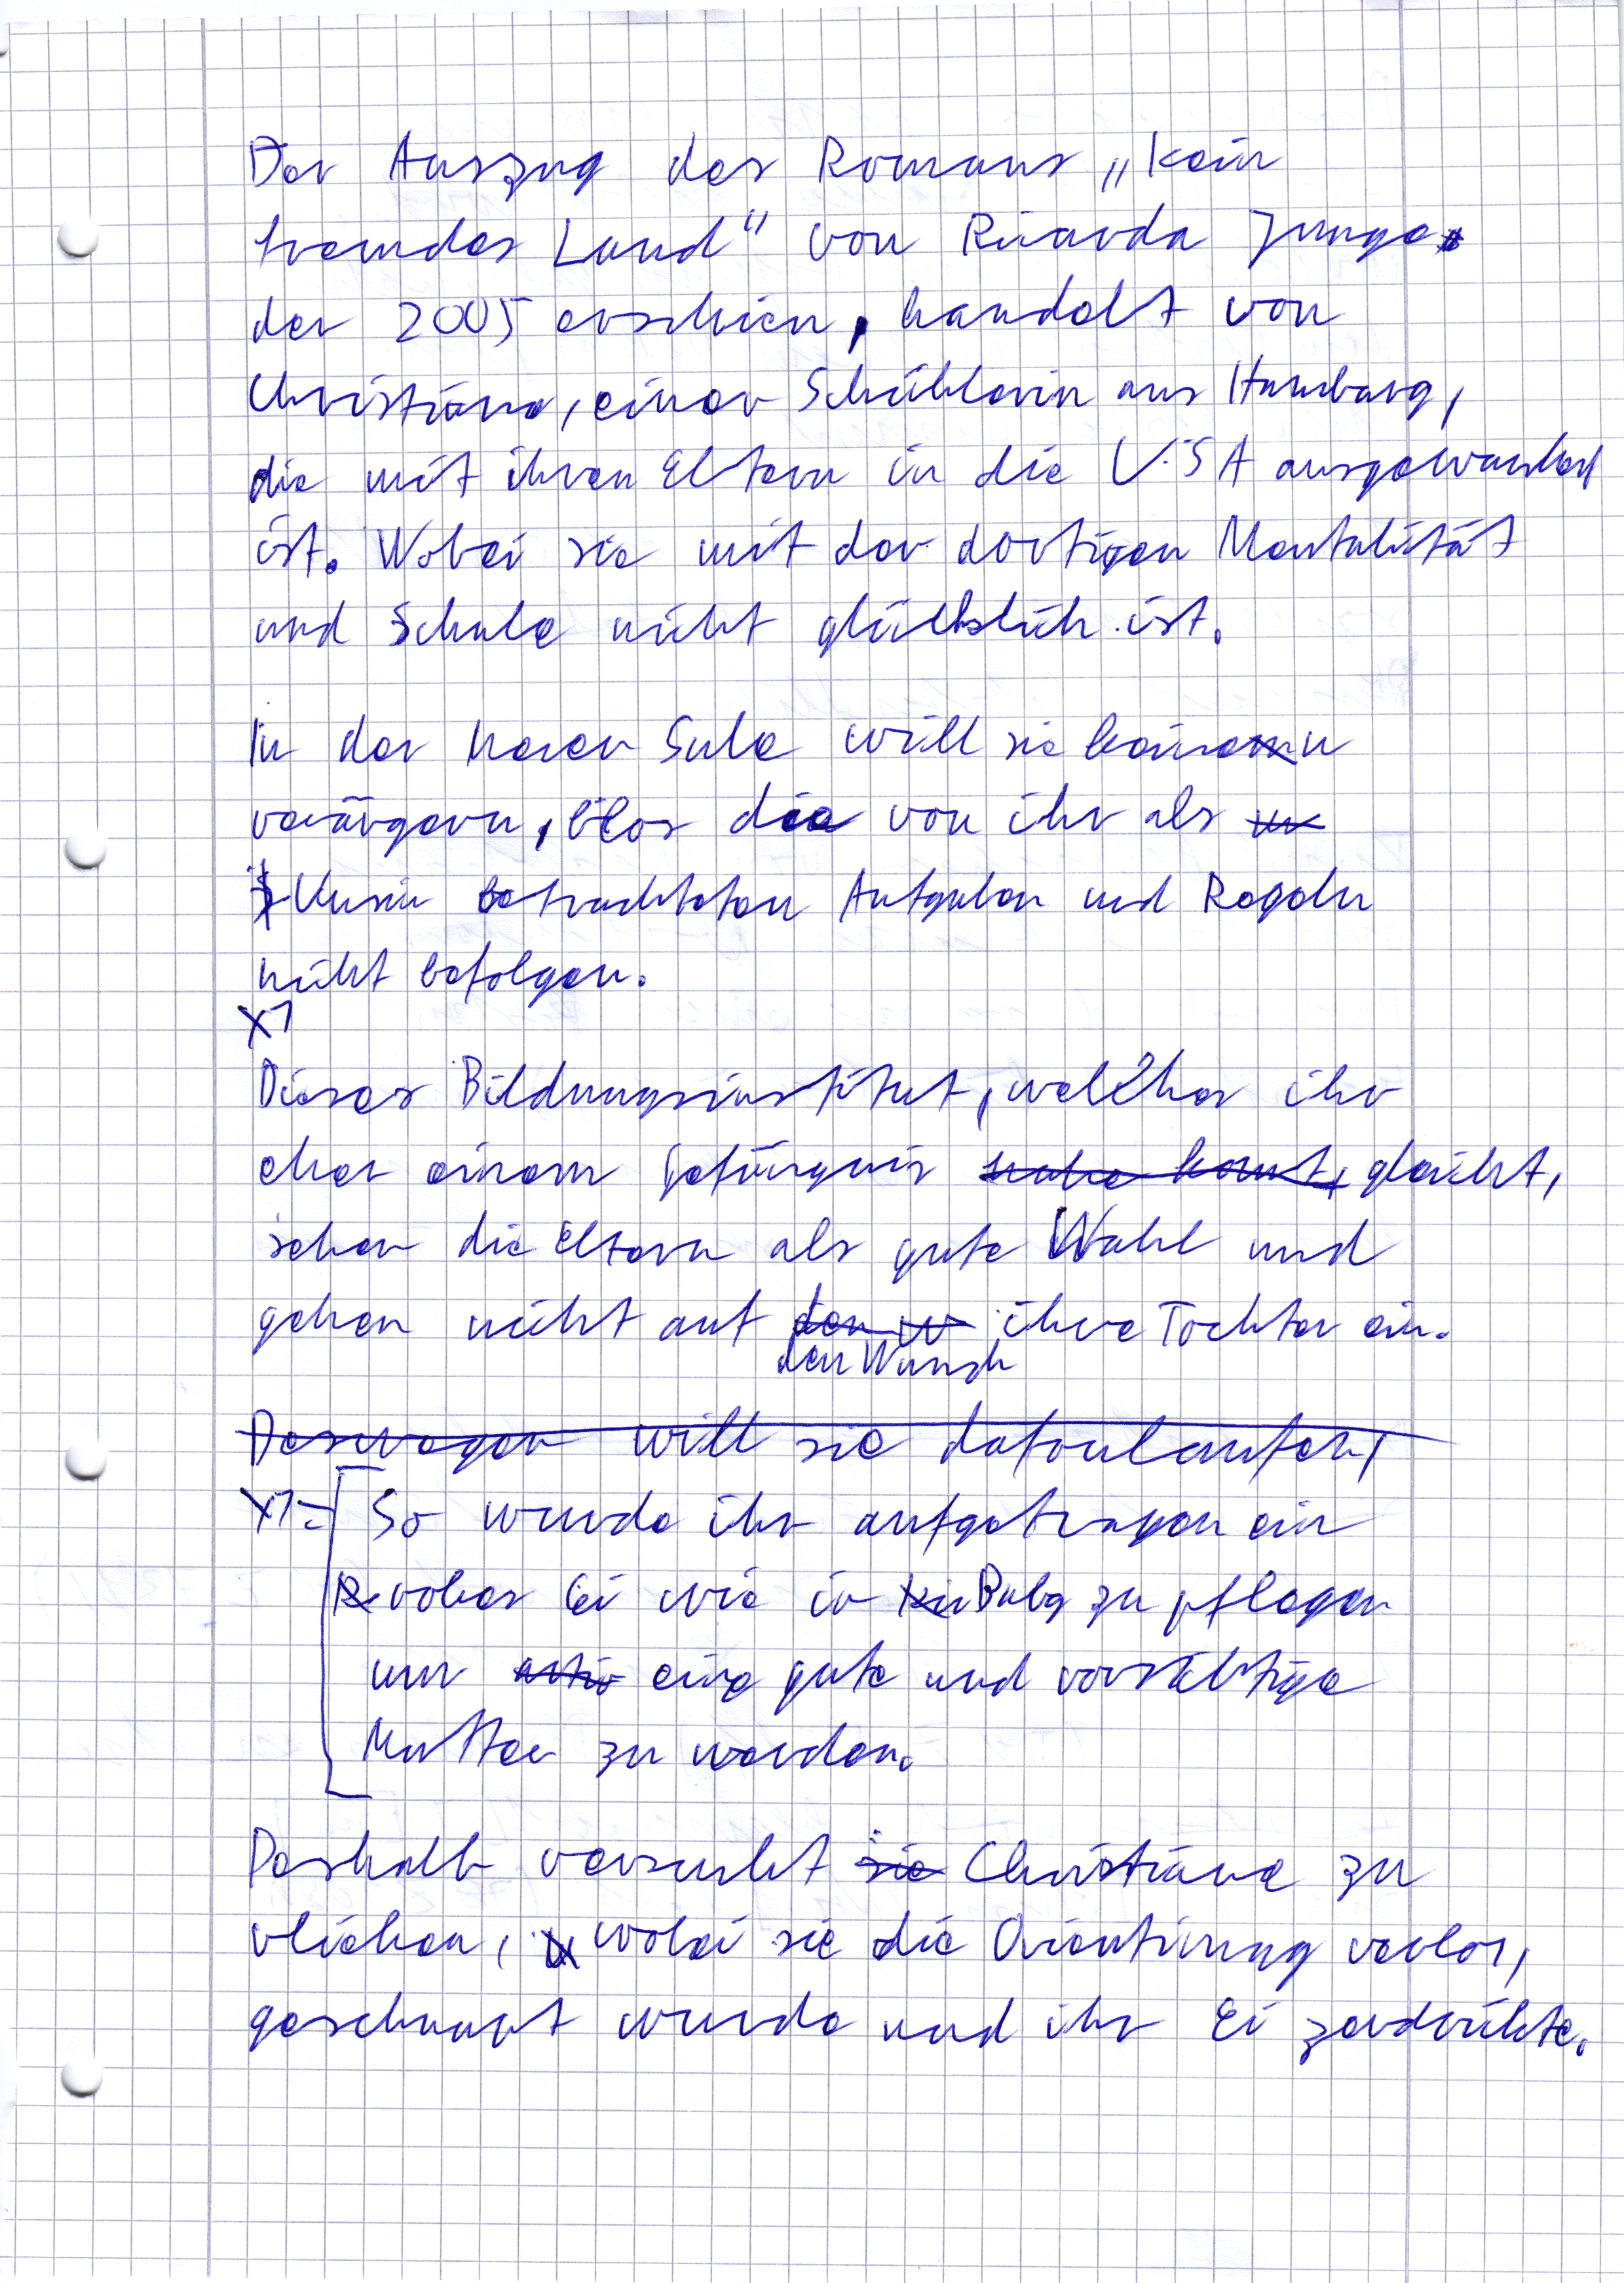 Der Auszug des Romans „kein
fremdes Land" von Ricarda Junge
der 2005 erschien, handelt von
Christiane, einer Schühlerin aus Hamburg,
die mit ihren Eltern in die U.S A ausgewandert
ist. Wobei sie mit der dortigen Mentalität
und Schule nicht glücklich ist.
In der neuen Sule will sie keinen
verärgern, blos die von ihr als
Unsin betrachteten Aufgaben und Regeln
nicht befolgen.
X1
Dieses Bildungsinstitut, welches ihr
eher einem Gefängnis nahe komt, gleicht,
sehen die Eltern als gute Wahl und
gehen nicht auf den w ihre Tochter ein.
den Wunsch
Deswegen will sie dafonlaufen,
X1= So wurde ihr aufgetragen ein
rohes Ei wie in Baby zu pflegen
um eine gute und vorsichtige
Mutter zu werden.
Deshalb versucht sie Christiane zu
vliehen, wobei sie die Orientirung verlor,
geschnapt wurde und ihr Ei zerdrükte.